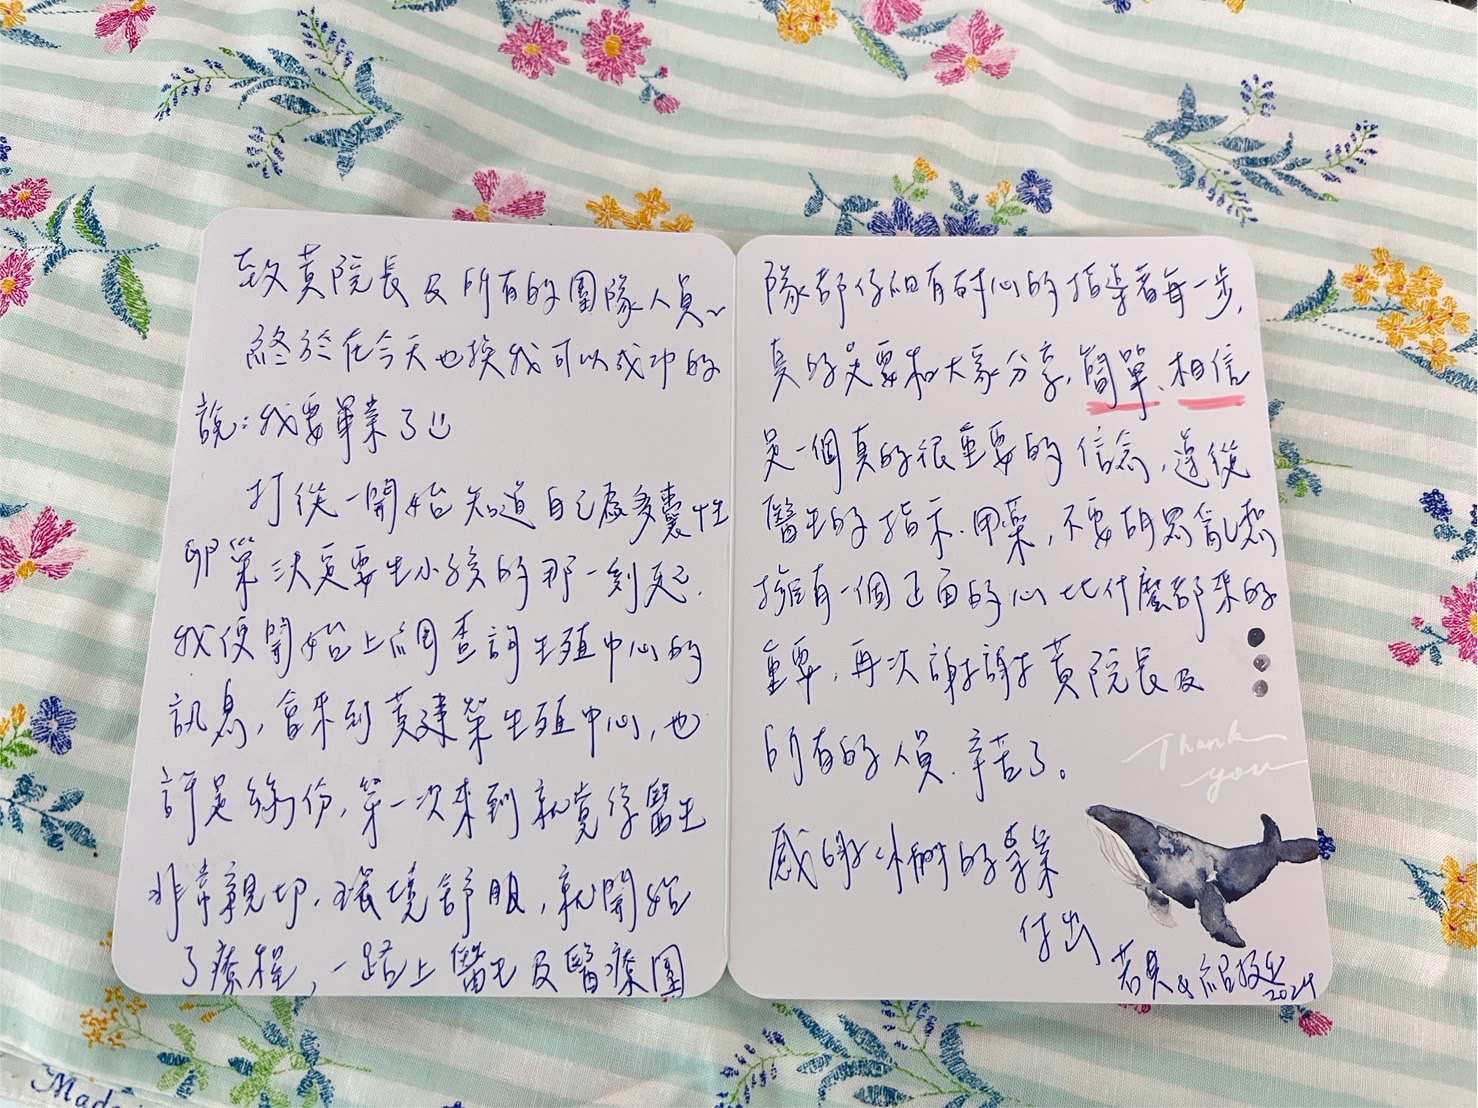 致黃院長及所有的團隊人員~
終於在今天也換我可以成功的
說:我要畢業了
打從一開始知道自己患多囊性
卵巢決定要生小孩的那一刻起.
我便開始上網查詢生殖中心的
訊息,會來到黃建榮生殖中心,也
許是緣份,第一次來到就覺得醫生
非常親切.環境舒服,就開始
了療程,一路上醫生及醫療團
隊都仔細有耐心的指導著每一步,
真的是要和大家分享,簡單、相信
是一個真的很重要的信念,遵從
醫生的指示.用藥,不要胡思亂想
擁有一個正面的心比什麼都來的
重要,再次謝謝黃院長及
所有的人員.辛苦了。
Thank
you
感謝 的專業
付出
& 
2024
Made